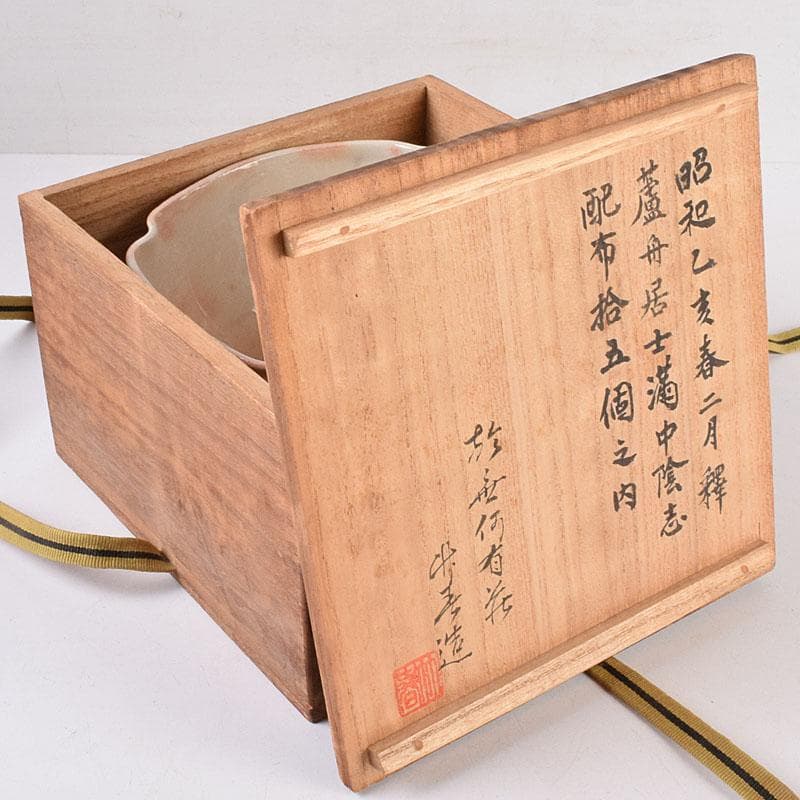 昭和乙亥春二月釋
蘆舟居士満中陰志
配布拾五個之内
於無何有荘
竹春造
竹春